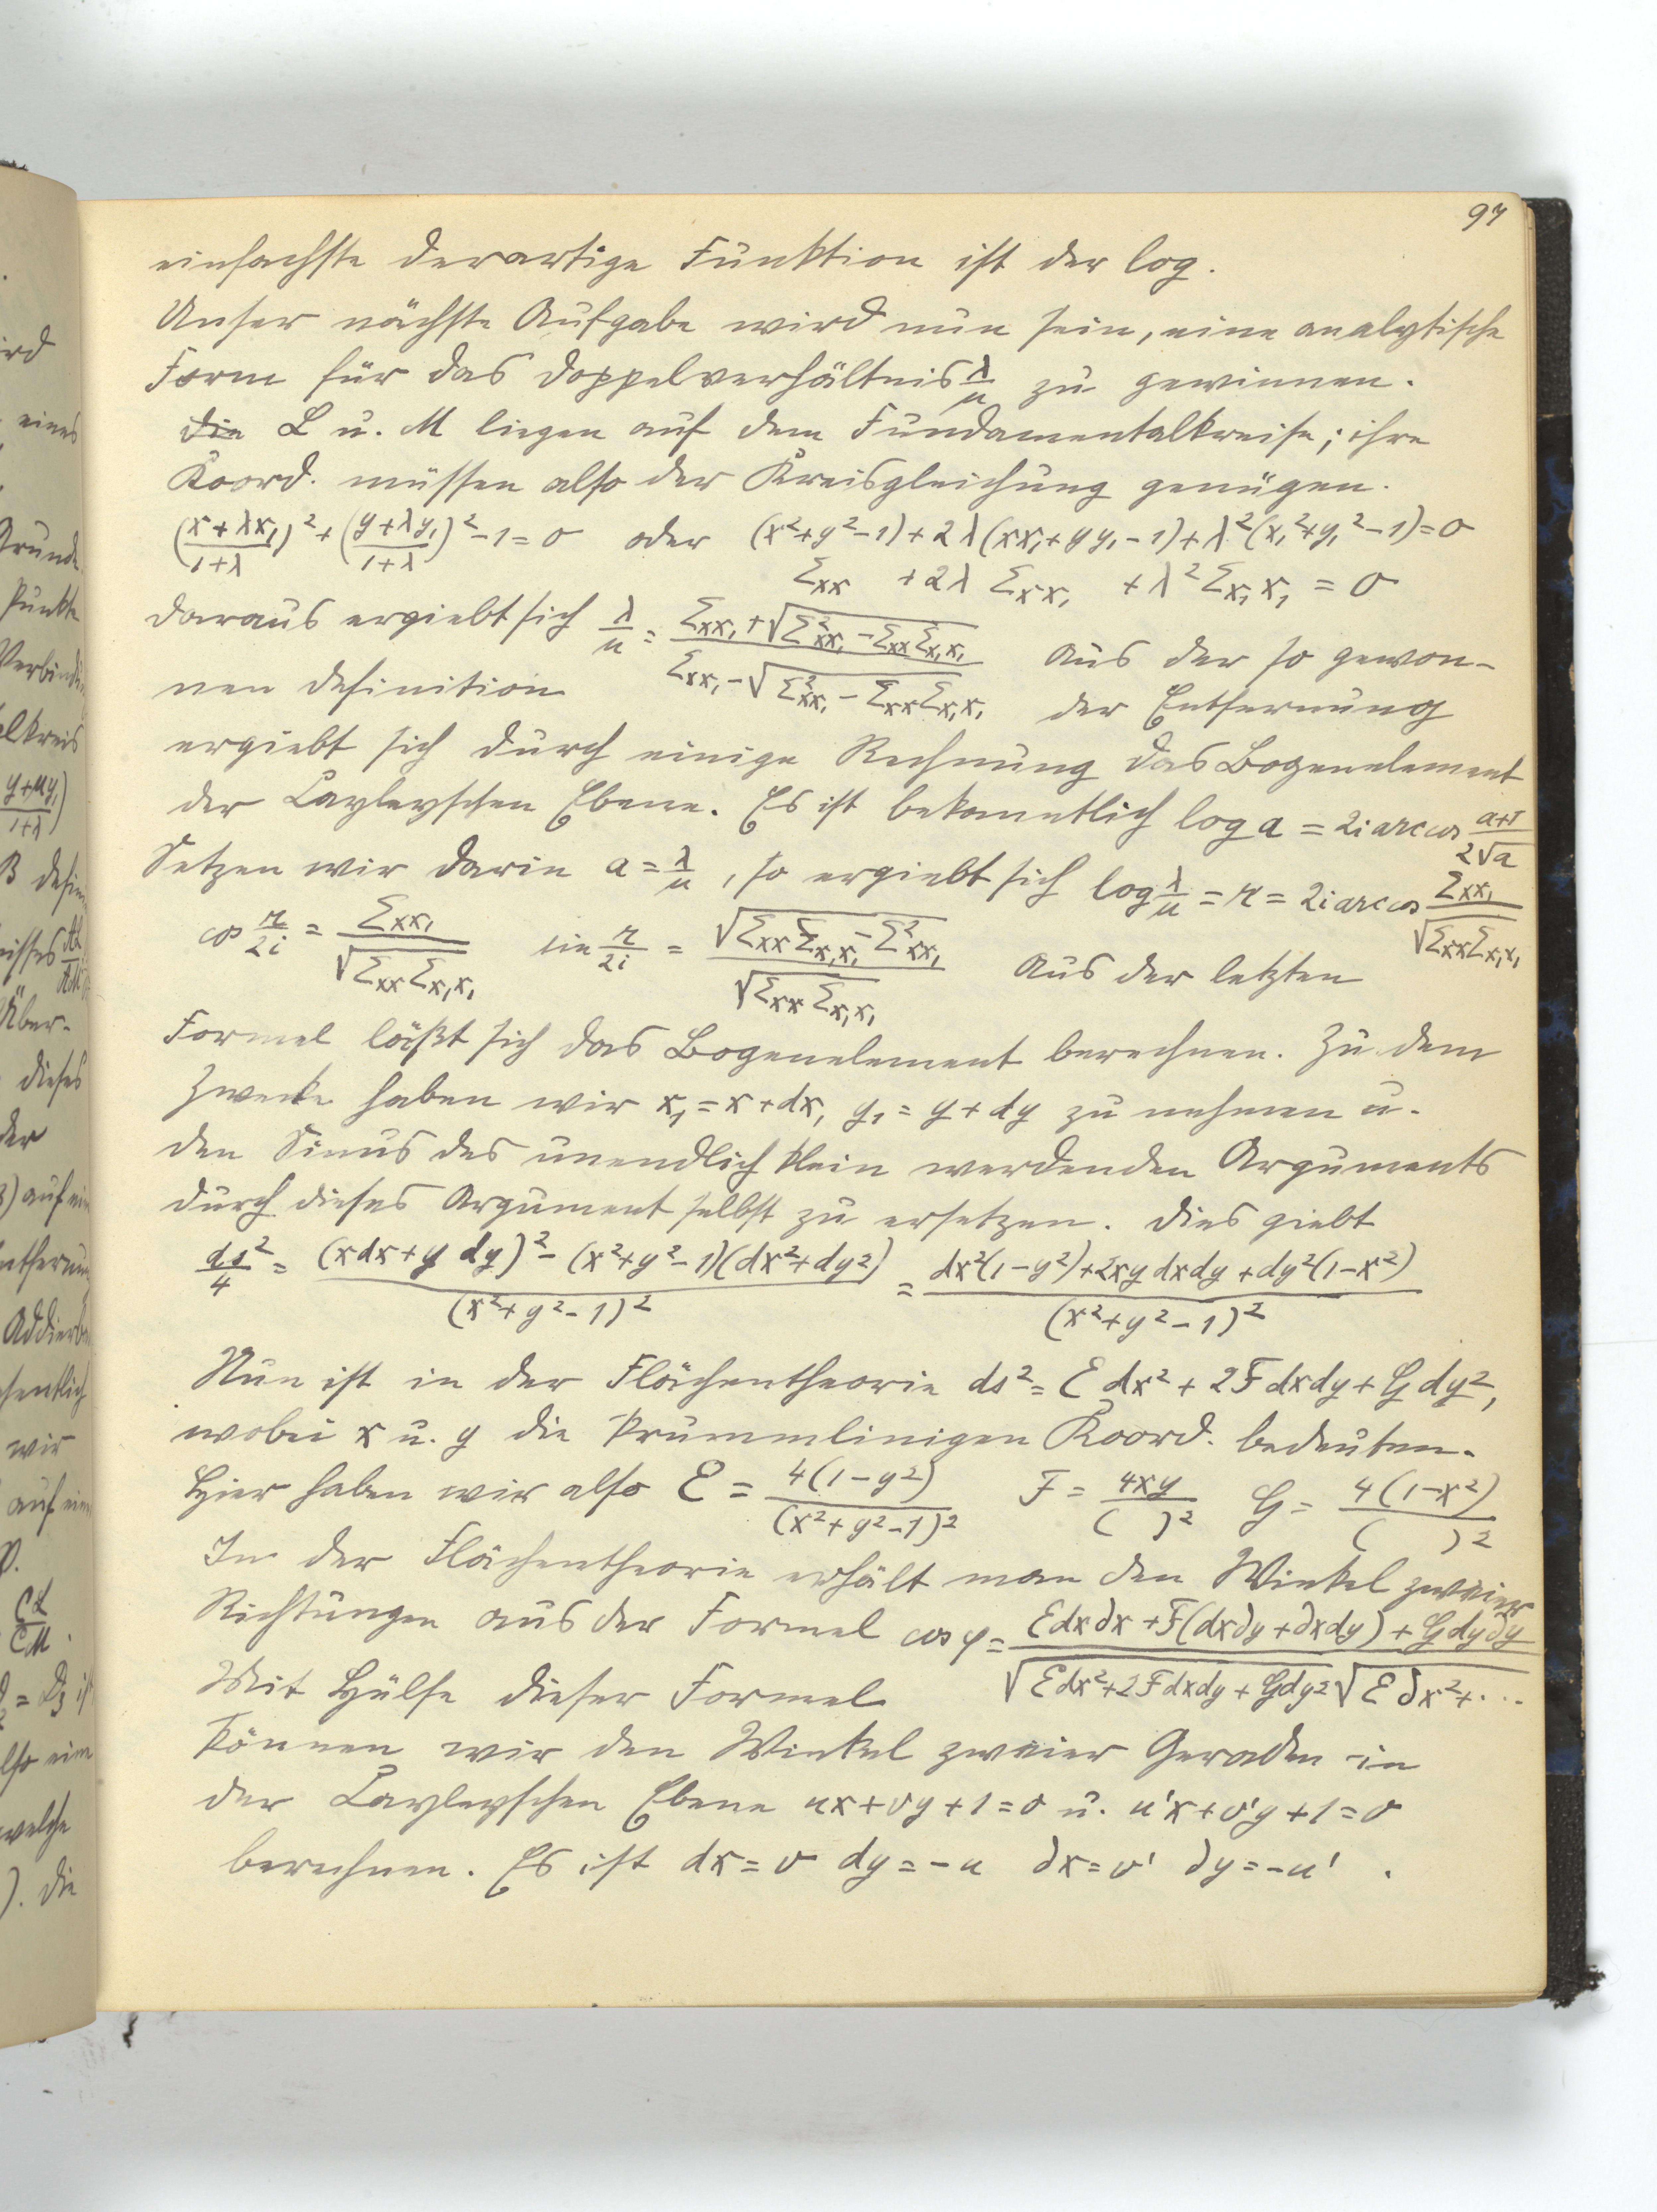 97
einfachste derartige Funktion ist der log.
Unser nächste Aufgabe wird nun sein, eine analytische
Form für das Doppelverhältnis λ/μ zu gewinnen.
Die L u. M liegen auf dem Fundamentalkreise; ihre
Koord. müssen also der Kreisgleichung genügen.
((x+λx₁)/(1+λ))² + ((y+λy₁)/(1+λ))² - 1 = 0 oder (x²+y²-1) + 2λ(xx₁+yy₁-1) + λ²(x₁²+y₁²-1) = 0
Σxx + 2λ Σxx₁ + λ² Σx₁x₁ = 0
Daraus ergiebt sich λ/μ = (Σxx₁ + √(Σ²xx₁ - Σxx Σx₁x₁)) / (Σxx₁ - √(Σ²xx₁ - Σxx Σx₁x₁)) Aus der so gewon-
nen Definition der Entfernung
ergiebt sich durch einige Rechnung das Bogenelement
der Cayleyschen Ebene. Es ist bekanntlich log a = 2i arc cos (a+1)/(2√a)
Setzen wir darin a = λ/μ, so ergiebt sich log λ/μ = r = 2i arc cos Σxx₁/√(Σxx Σx₁x₁)
cos r/2i = Σxx₁/√(Σxx Σx₁x₁) sin r/2i = √(Σxx Σx₁x₁ - Σ²xx₁)/√(Σxx Σx₁x₁) Aus der letzten
Formel läßt sich das Bogenelement berechnen. Zu dem
Zwecke haben wir x₁ = x+dx, y₁ = y+dy zu nehmen u.
den Sinus des unendlich klein werdenden Arguments
durch dieses Argument selbst zu ersetzen. Dies giebt
ds²/4 = ((xdx+y dy)² - (x²+y²-1)(dx²+dy²))/(x²+y²-1)² = (dx²(1-y²)+2xy dxdy+dy²(1-x²))/(x²+y²-1)²
Nun ist in der Flächentheorie ds² = E dx² + 2F dxdy + G dy²,
wobei x u. y die krummlinigen Koord. bedeuten.
Hier haben wir also E = 4(1-y²)/(x²+y²-1)² F = 4xy/( )² G = 4(1-x²)/( )²
In der Flächentheorie erhält man den Winkel zweier
Richtungen aus der Formel cos φ = (E dx∂x + F(dx∂y + ∂xdy) + G dy∂y)/(√(E dx²+2F dxdy+G dy²) √(E ∂x²+...
Mit Hülfe dieser Formel
können wir den Winkel zweier Geraden in
der Cayleyschen Ebene ux+vy+1=0 u. u'x+v'y+1=0
berechnen. Es ist dx=v dy=-u ∂x=v' ∂y=-u' .